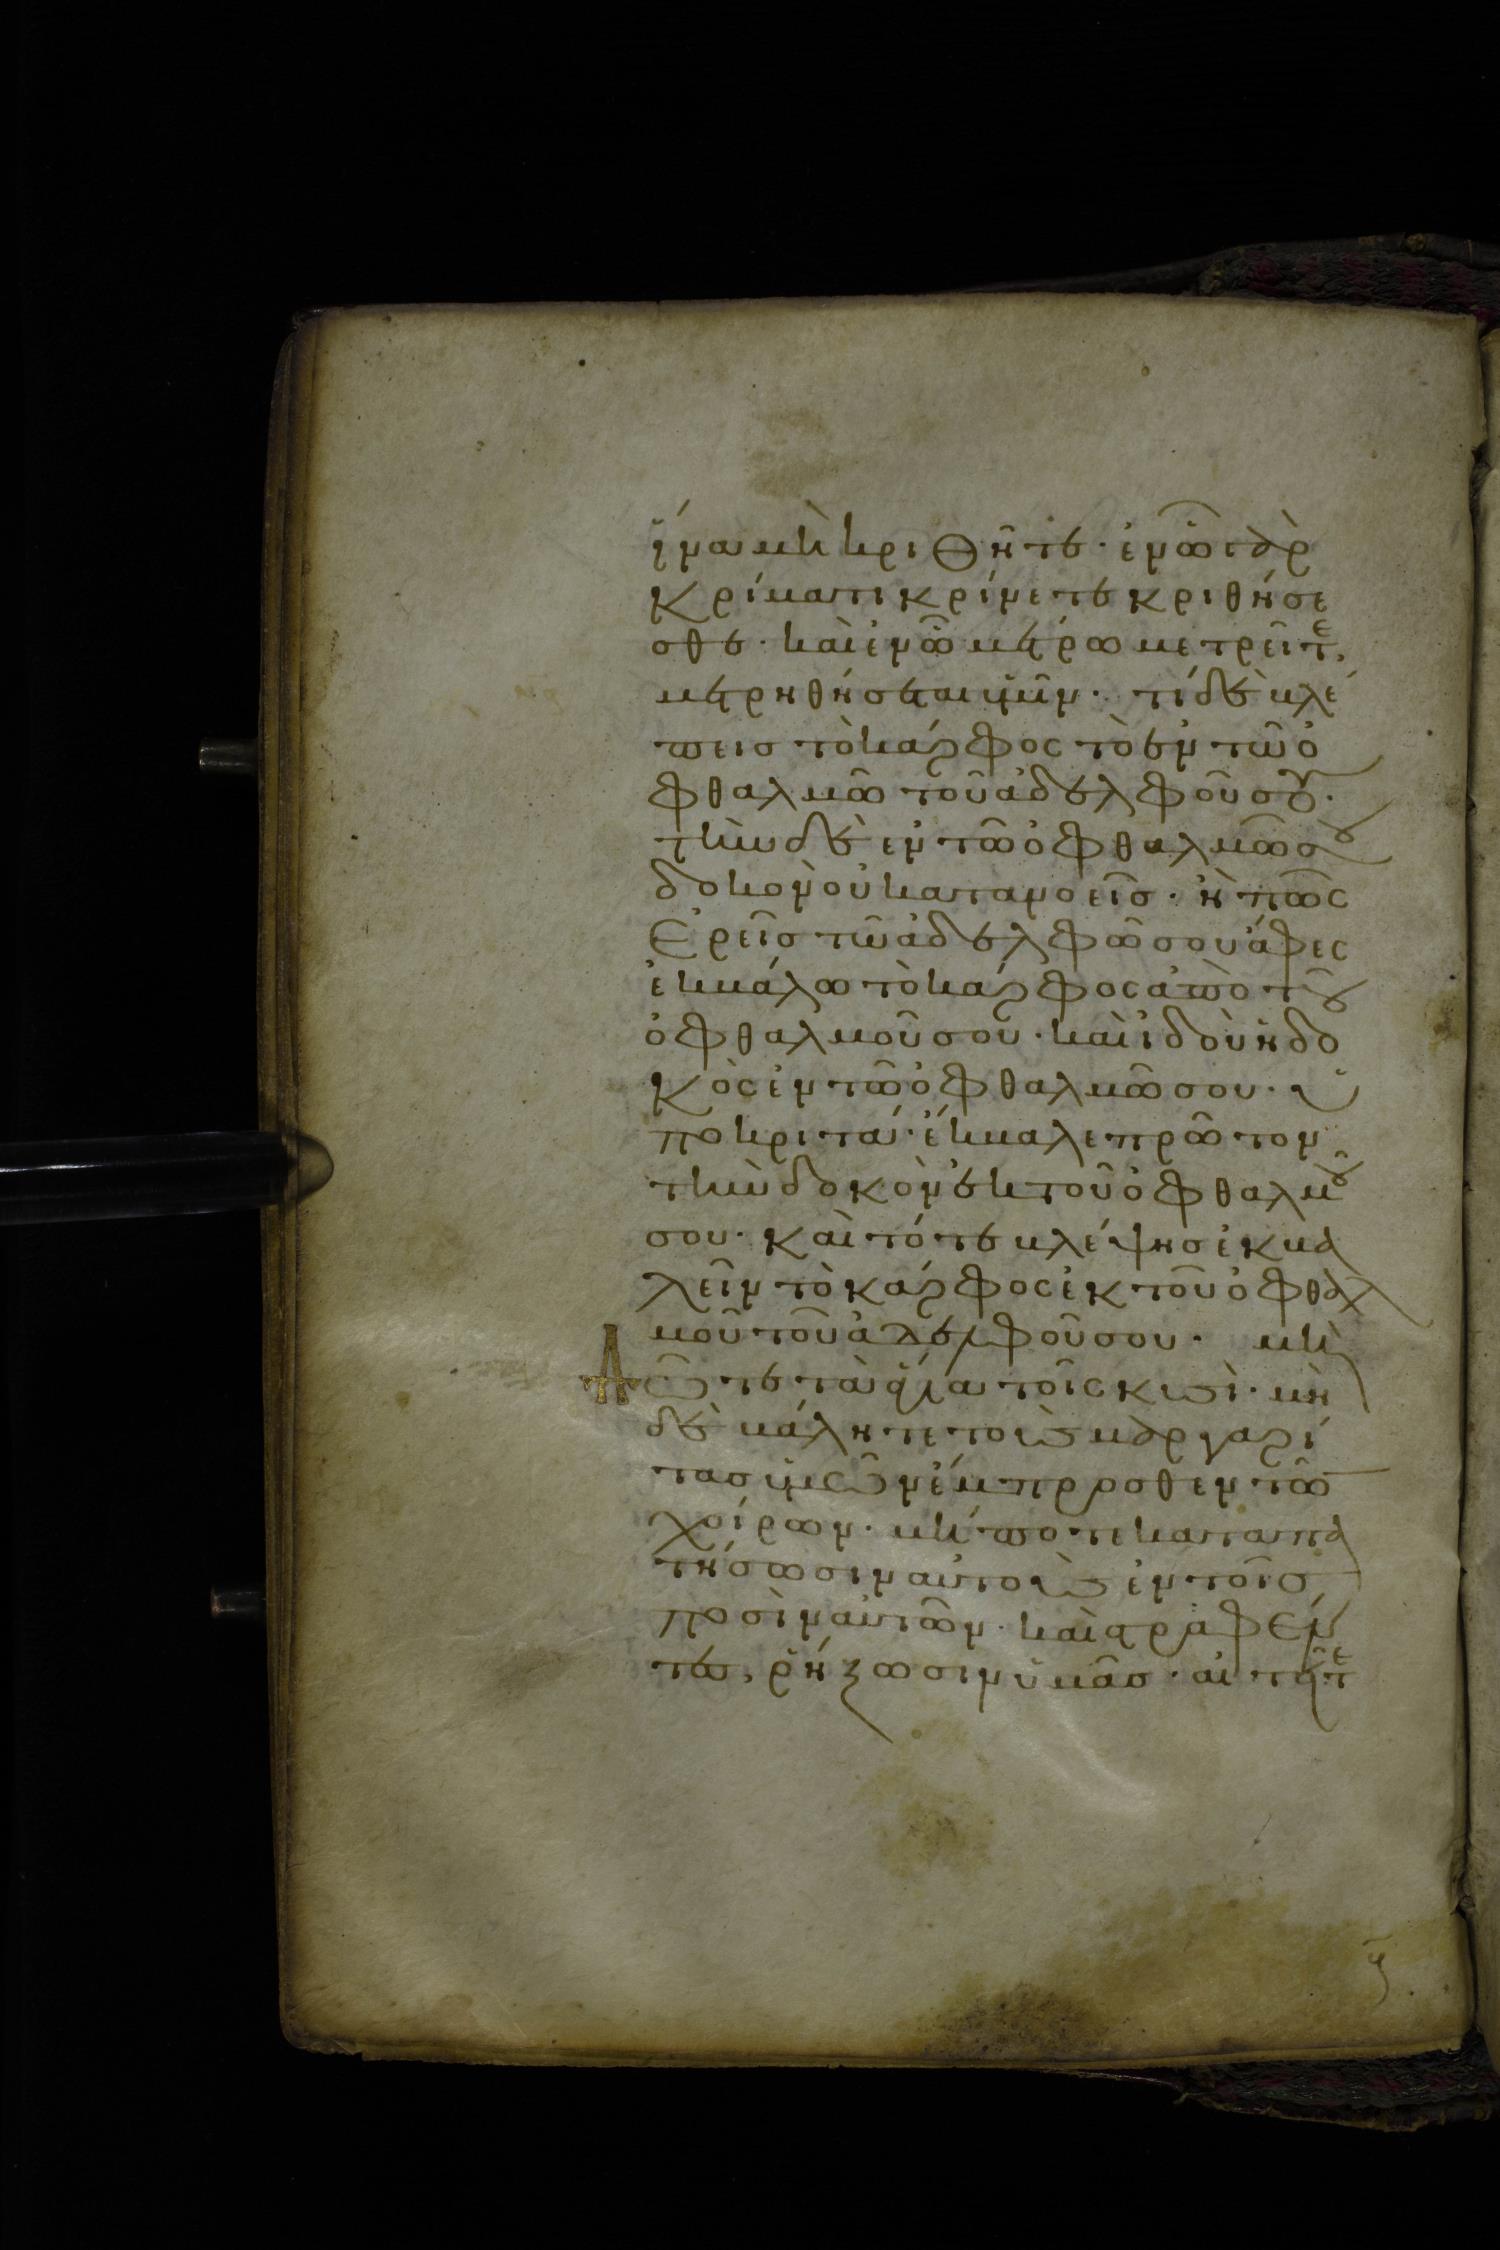 ἵνα μὴ κριθῆτε· ἐν ᾧ γὰρ
κρίματι κρίνετε κριθήσε
σθε· καὶ ἐν ᾧ μέτρω μετρεῖτε,
μετρηθήσεται ὑμῖν· τί δὲ βλέ
πεισ τὸ κάρφος τὸ ἐν τῶ ὀ
φθαλμῶ τοῦ ἀδελφοῦ σου·
τὴν δὲ ἐν τῶ ὀφθαλμῶ σου
δοκὸν οὐ κατανοεῖσ· ἢ πῶς
ἐρεῖσ τῶ ἀδελφῶ σου ἄφες
ἐκβάλω τὸ κάρφος ἀπὸ τοῦ
ὀφθαλμοῦ σου· καὶ ἰδοὺ ἡ δο
κὸς ἐν τῶ ὀφθαλμῶ σου· ὑ
ποκριτά· ἔκβαλε πρῶτον
τὴν δοκὸν ἐκ τοῦ ὀφθαλμοῦ
σου· καὶ τότε βλέψησ ἐκβα
λεῖν τὸ κάρφος ἐκ τοῦ ὀφθαλ
μοῦ τοῦ ἀδελφοῦ σου· μὴ
Δῶτε τὰ ἅγια τοῖς κυσὶ· μη
δὲ βάλητε τοὺσ μαργαρί
τασ ὑμῶν ἔμπροσθεν τῶν
χοίρων· μήποτε καταπα
τήσωσιν αὐτοὺσ ἐν τοῖσ
ποσὶν αὐτῶν· καὶ στραφέν
τεσ, ῥήξωσιν ὑμᾶσ· αἰτεῖτε